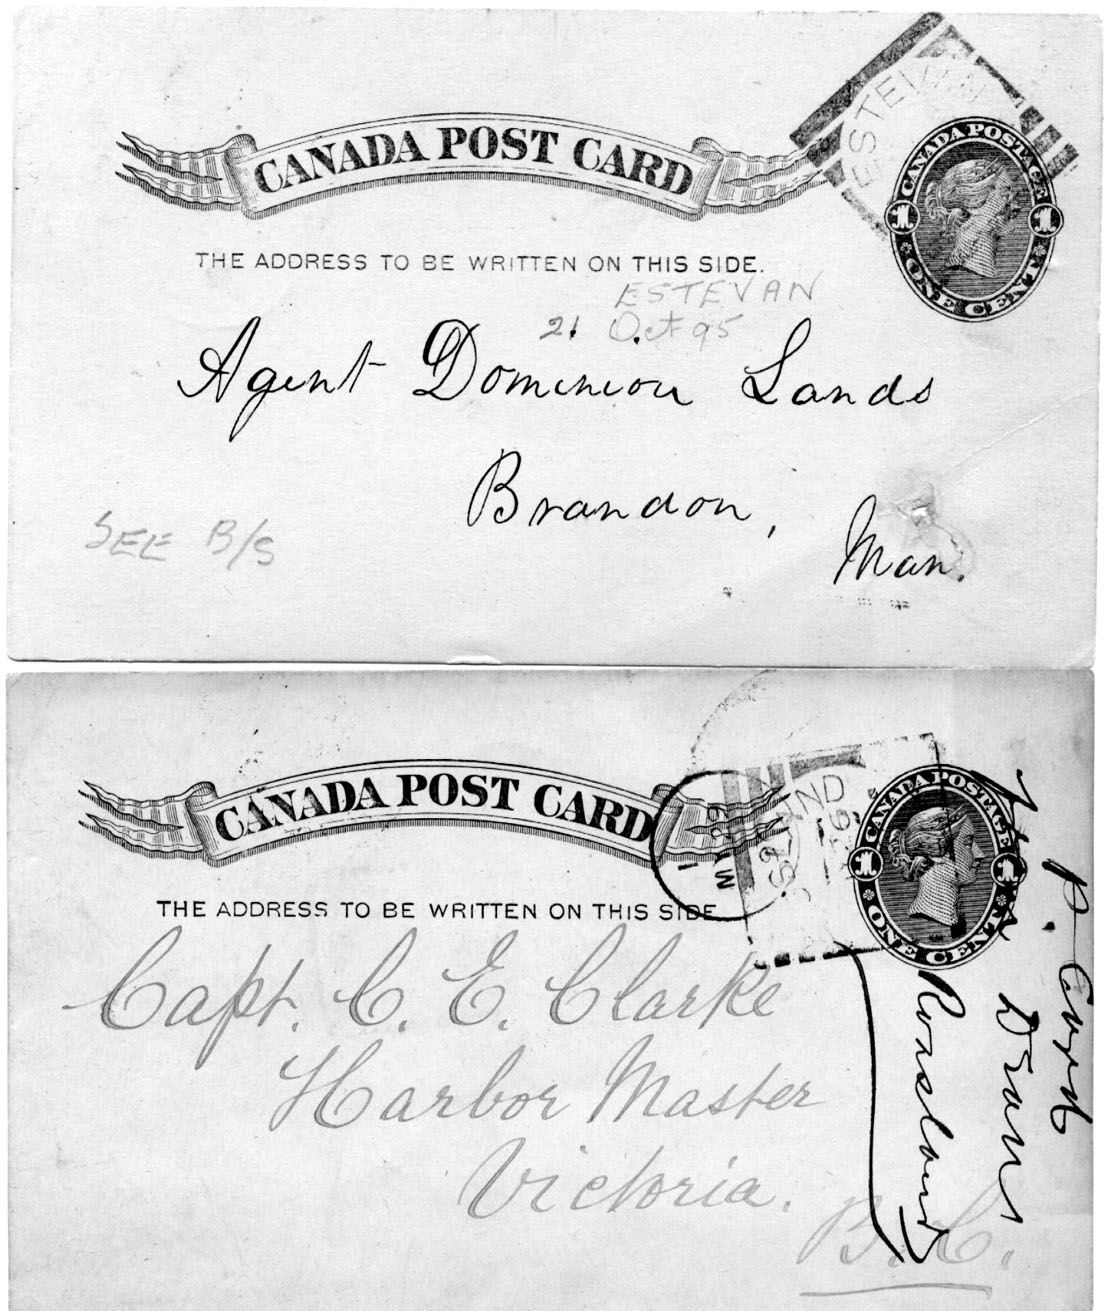 CANADA POST CARD
ESTEVAN
CANADA POSTAGE
1 1
ONE CENT
THE ADDRESS TO BE WRITTEN ON THIS SIDE.
ESTEVAN
21 Oct 95
Agent Dominion Lands
Brandon,
Man.
SEE B/S
CANADA POST CARD
CANADA POSTAGE
1 1
ONE CENT
THE ADDRESS TO BE WRITTEN ON THIS SIDE
Capt. C. E. Clarke
Harbor Master
Victoria.
B.C.
Rossland